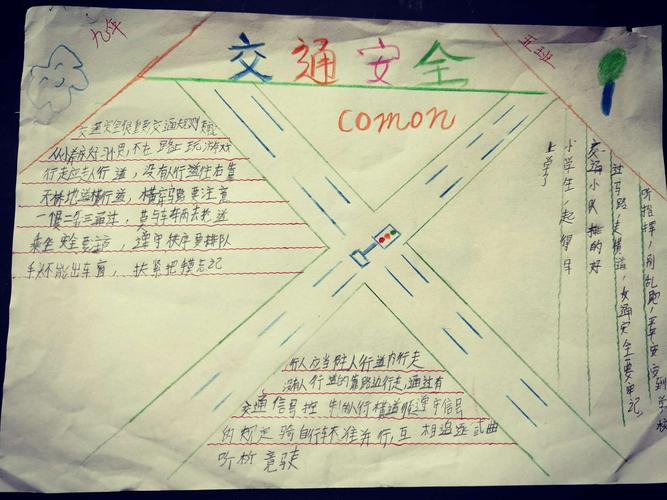 九年
五班
交通安全
comon
交通安全很重要交通规则
从小养成好习惯,不在路上玩游戏
行走应走人行道,没有人行道往右靠
天桥地道横行道,横穿马路要注意
一慢二看三通过,莫与车辆去抢道
乘车安全要注意,遵守秩序要排队
手头不能出车窗,扶紧把手莫忘记
行人应当在人行道内行走
没有人行道的靠路边行走,通过有
交通信号控制的人行横道须遵守信号
的规定骑自行车不准并行,互相追逐或曲
折竞驶
小学生,起得早
上学了
交通小队排的好
过马路,走横道,交通安全要牢记
听指挥,别乱跑,平平安安到学校